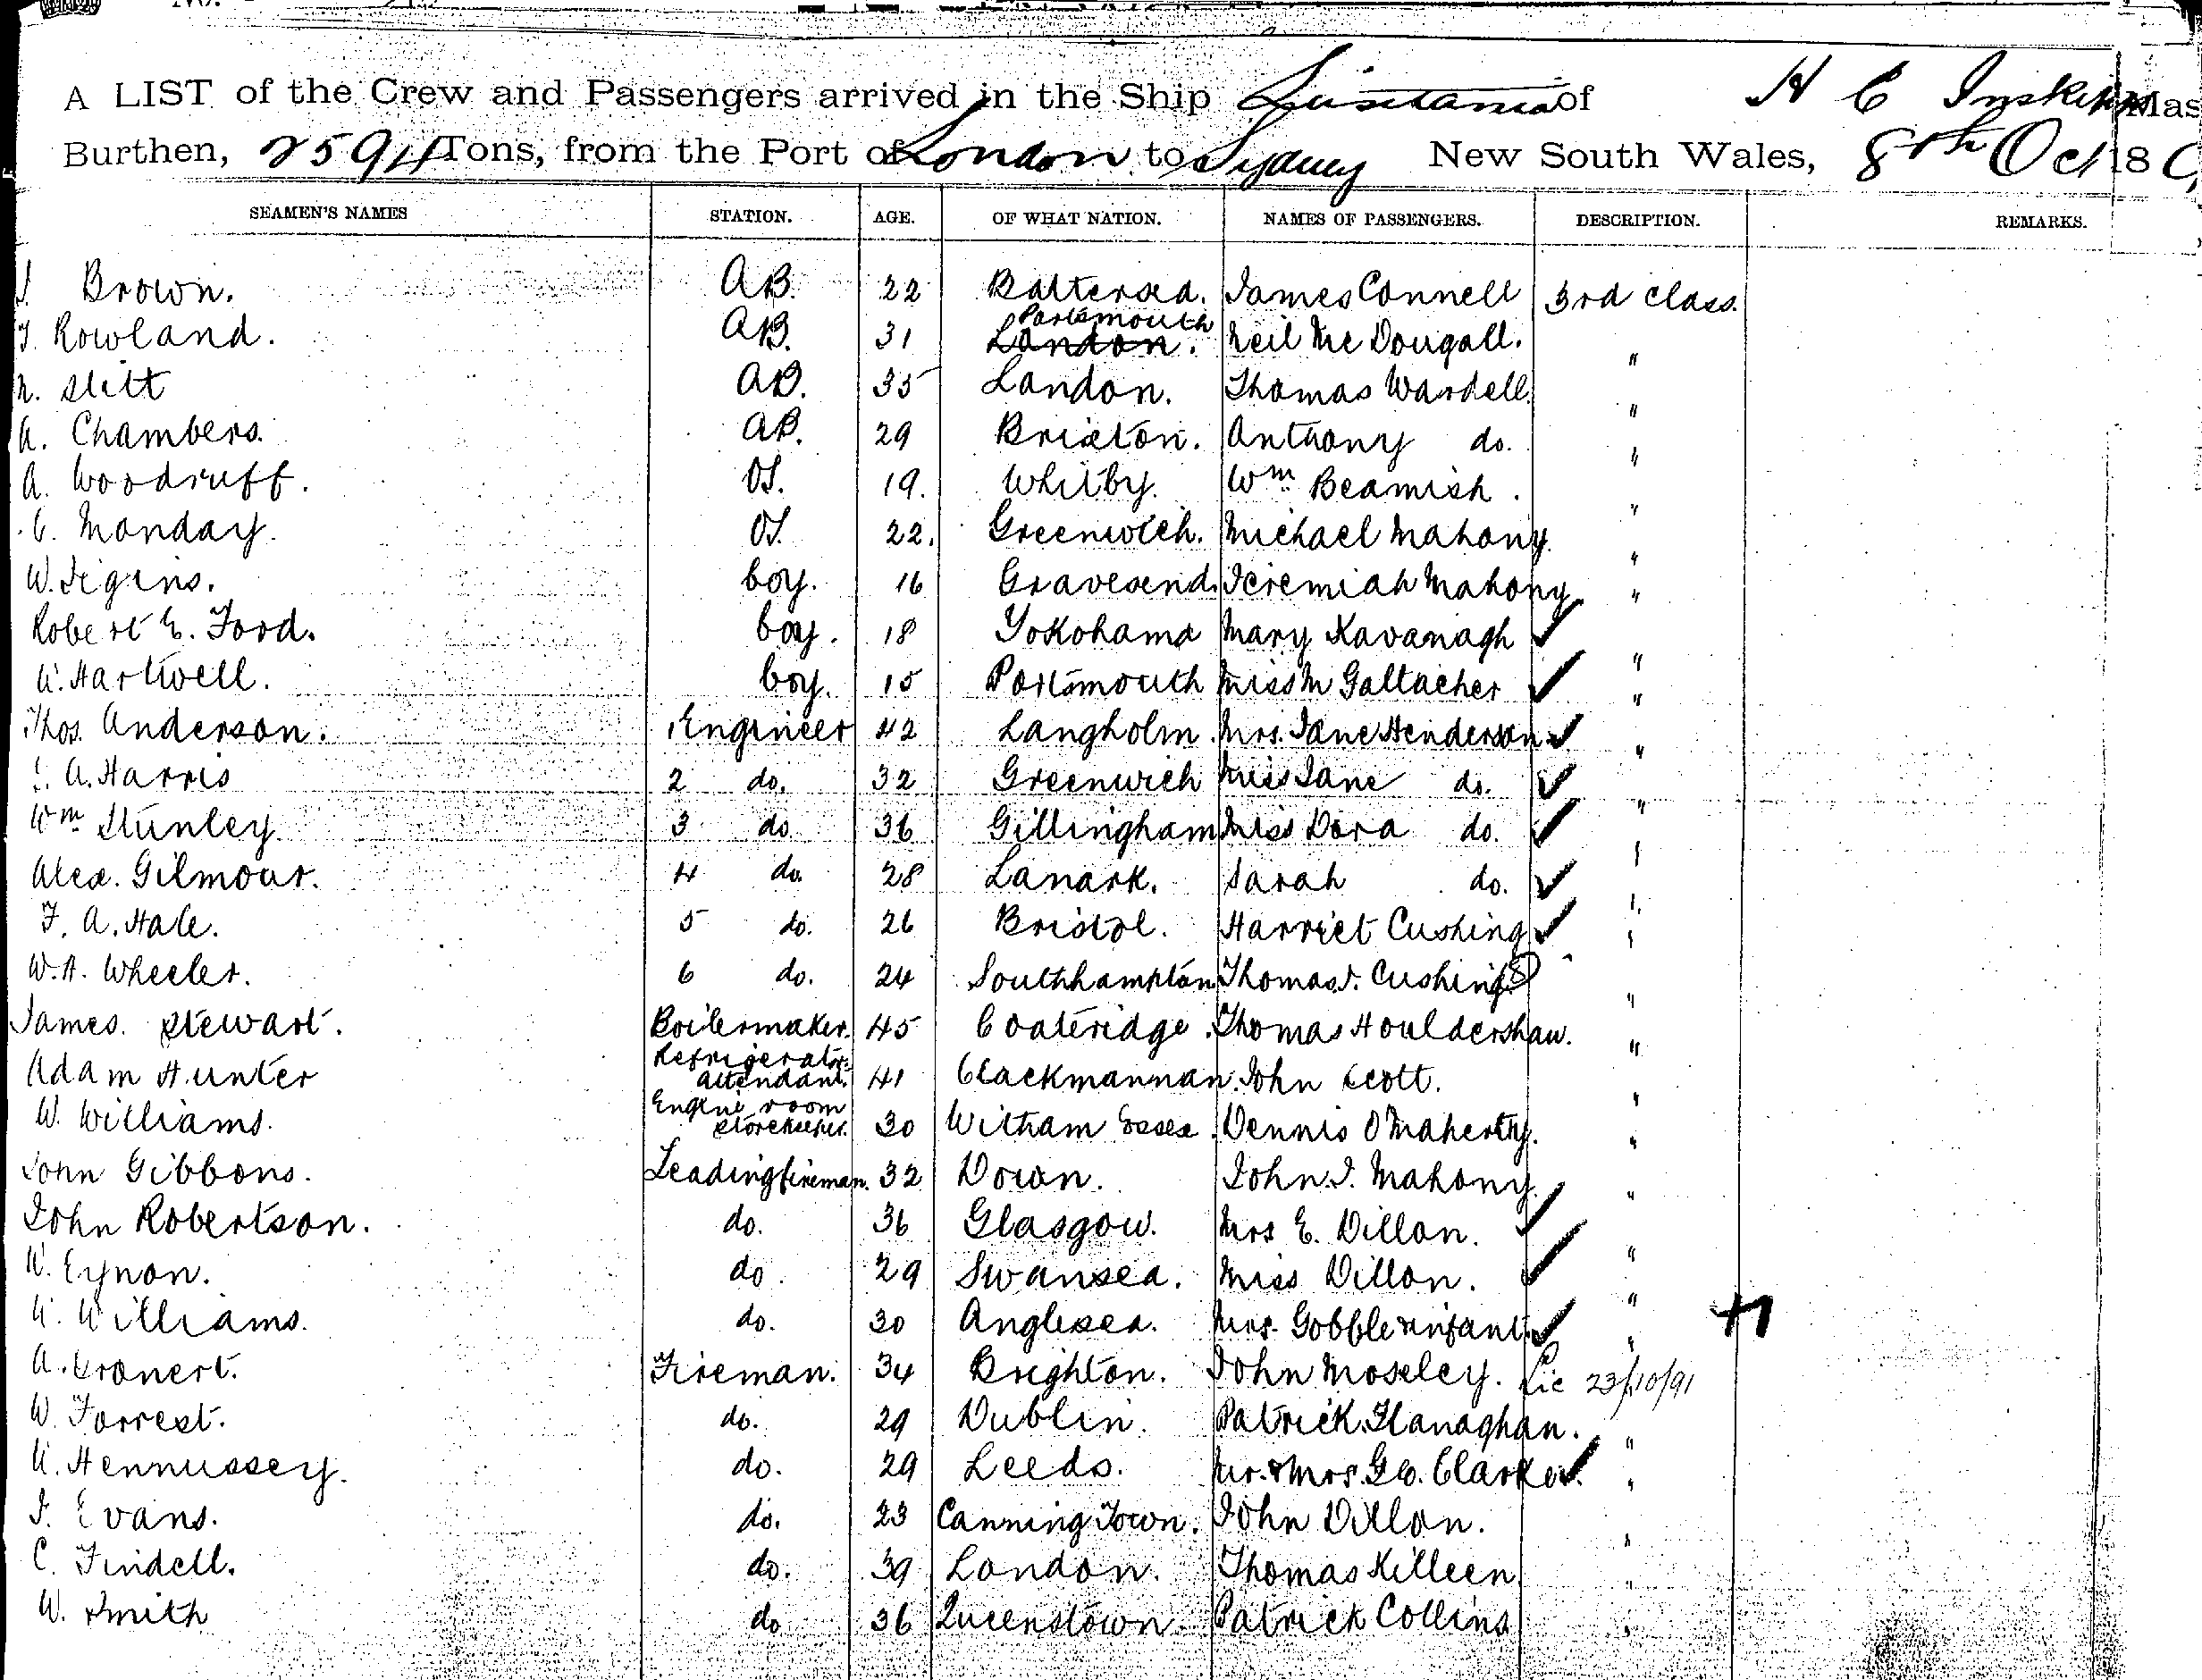 A LIST of the Crew and Passengers arrived in the Ship Lusitania of H C Inskip Mas
Burthen, 2594 Tons, from the Port of London to Sydney New South Wales, 8th Oct 18
SEAMEN'S NAMES STATION. AGE. OF WHAT NATION. NAMES OF PASSENGERS. DESCRIPTION. REMARKS.
Brown. AB. 22 Battersea. James Connell 3rd class.
Rowland. AB. 31 Portsmouth London. Neil McDougall. "
Stitt AB. 35 London. Thomas Wardell "
A. Chambers. AB. 29 Brixton. Anthony do. "
A. Woodruff. OS. 19. Whitby. Wm Beamish. "
C. Monday. OS. 22. Greenwich. Michael Mahony "
W. Tigins. boy. 16 Gravesend. Jeremiah Mahony "
Robert E. Ford. boy. 18 Yokohama Mary Kavanagh ✓ "
Hartwell. boy. 15 Portsmouth Miss M Gallacher ✓ "
Thos. Anderson. 1 Engineer 42 Langholm. Mrs. Jane Henderson ✓ "
A. Harris 2 do. 32 Greenwich Miss Jane do. ✓ "
Wm Stunley 3 do 36 Gillingham Miss Dora do. ✓ "
Alex. Gilmour. 4 do. 28 Lanark. Sarah do. ✓ "
F. A. Hale. 5 do. 26 Bristol. Harriet Cushing ✓ "
W.A. Wheeler. 6 do. 24 Southhampton Thomas J. Cushing 8 "
James. Stewart. Boilermaker. 45 Coateridge. Thomas Houldershaw. "
Adam Hunter Refrigerator attendant. 41 Clackmannan. John Scott. "
W. Williams. Engine room storekeeper. 30 Witham Essex. Dennis O'Maherty. "
John Gibbons. Leading fireman. 32 Down. John. J. Mahony. "
John Robertson. do. 36 Glasgow. Mrs E. Dillon. ✓ "
Eynon. do. 29 Swansea. Miss Dillon. ✓ "
Williams. do. 30 Anglesea. Mrs. Gobble & infant. ✓ "
A. Fireman. 34 Brighton. John Moseley. Lic 23/10/91
W. Forrest. do. 29 Dublin. Patrick Flanaghan. "
Hennussey. do. 29 Leeds. Mr. & Mrs. Geo. Clarke. ✓ "
Evans. do. 23 Canning Town. John Dillon. "
C. Findell. do. 39 London. Thomas Killeen "
W. Smith do 36 Queenstown. Patrick Collins "